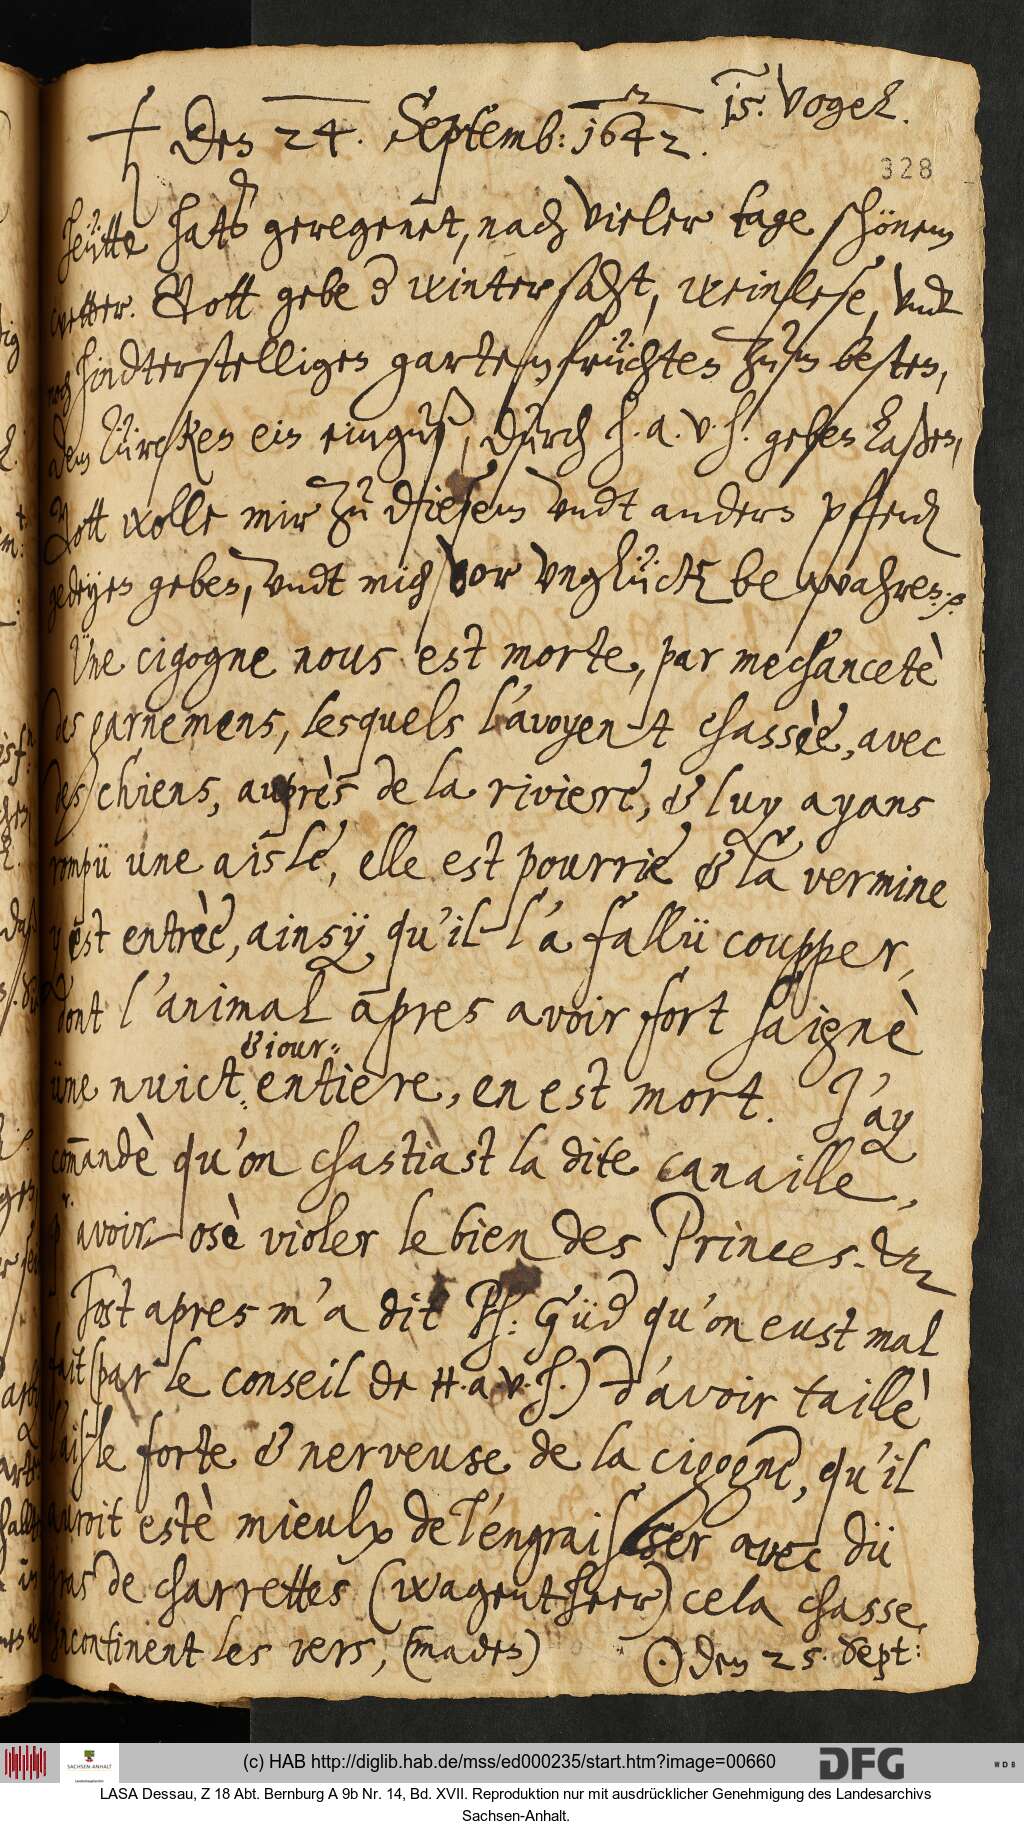 15. Vogel.
Den 24. Septemb: 1642.
328
Heütte hats geregenet, nach vieler tage schönem
wetter. Gott gebe d wintersaht, weinlese, vndt
noch hindterstelligen gartenfrüchten zum besten,
dem Türcken ein einguß, durch H. a. v. H. geben laßen,
Gott wolle mir zu diesem vndt andern pfferden
gedeyen geben, vndt mich vor vnglück bewahren.
Üne cigogne nous est morte, par mechancetè
des garnemens, lesquels l'avoyent chassèe, avec
des chiens, auprès de la riviere, & luy ayans
rompü une aisle, elle est pourrie & la vermine
y est entrèe, ainsÿ qu'il l'a fallü coupper,
dont l'animal apres avoir fort saignè
& iour
üne nuict entiere, en est mort. J'ay
com̄andè qu'on chastiast la dite canaille,
p. avoir osè violer le bien des Princes. &c
Tost apres m'a dit Ph: Güd qu'on eust mal
fait (par le conseil de H. a. v. H.) d'avoir taillè
l'aisle forte & nerveuse de la cigogne, qu'il
auroit estè mieulx de l'engraisser avec dü
gras de charrettes (wagentheer) cela chasse
incontinent les vers, (maden)
☉ den 25. Sept:
(c) HAB http://diglib.hab.de/mss/ed000235/start.htm?image=00660
SACHSEN-ANHALT
DFG
WDB
LASA Dessau, Z 18 Abt. Bernburg A 9b Nr. 14, Bd. XVII. Reproduktion nur mit ausdrücklicher Genehmigung des Landesarchivs
Sachsen-Anhalt.